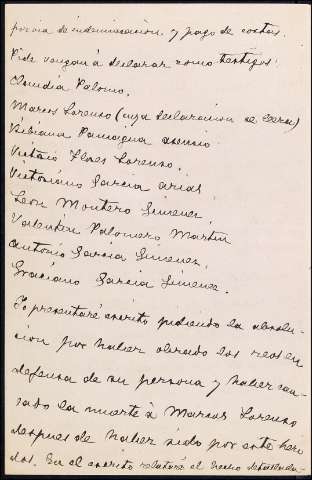 por via de indemnización y pago de costas.
Pide vengan á declarar como testigos:
Claudia Palomo.
Marcos Lorenzo (cuya declaración se leerá)
Bibiana Paniagua
Victorio Flores Lorenzo.
Victoriano García Arias
Leon Montero Gimenez.
Valentin Palomero Martin
Antonio Garcia Gimenez.
Graciano Garcia Gimenez.
Yo presentaré escrito pidiendo la absolu-
cion por haber obrado los reos en
defensa de su persona y haber cau-
sado la muerte á Marcos Lorenzo
despues de haber sido por este heri-
dos. En el escrito relataré el hecho